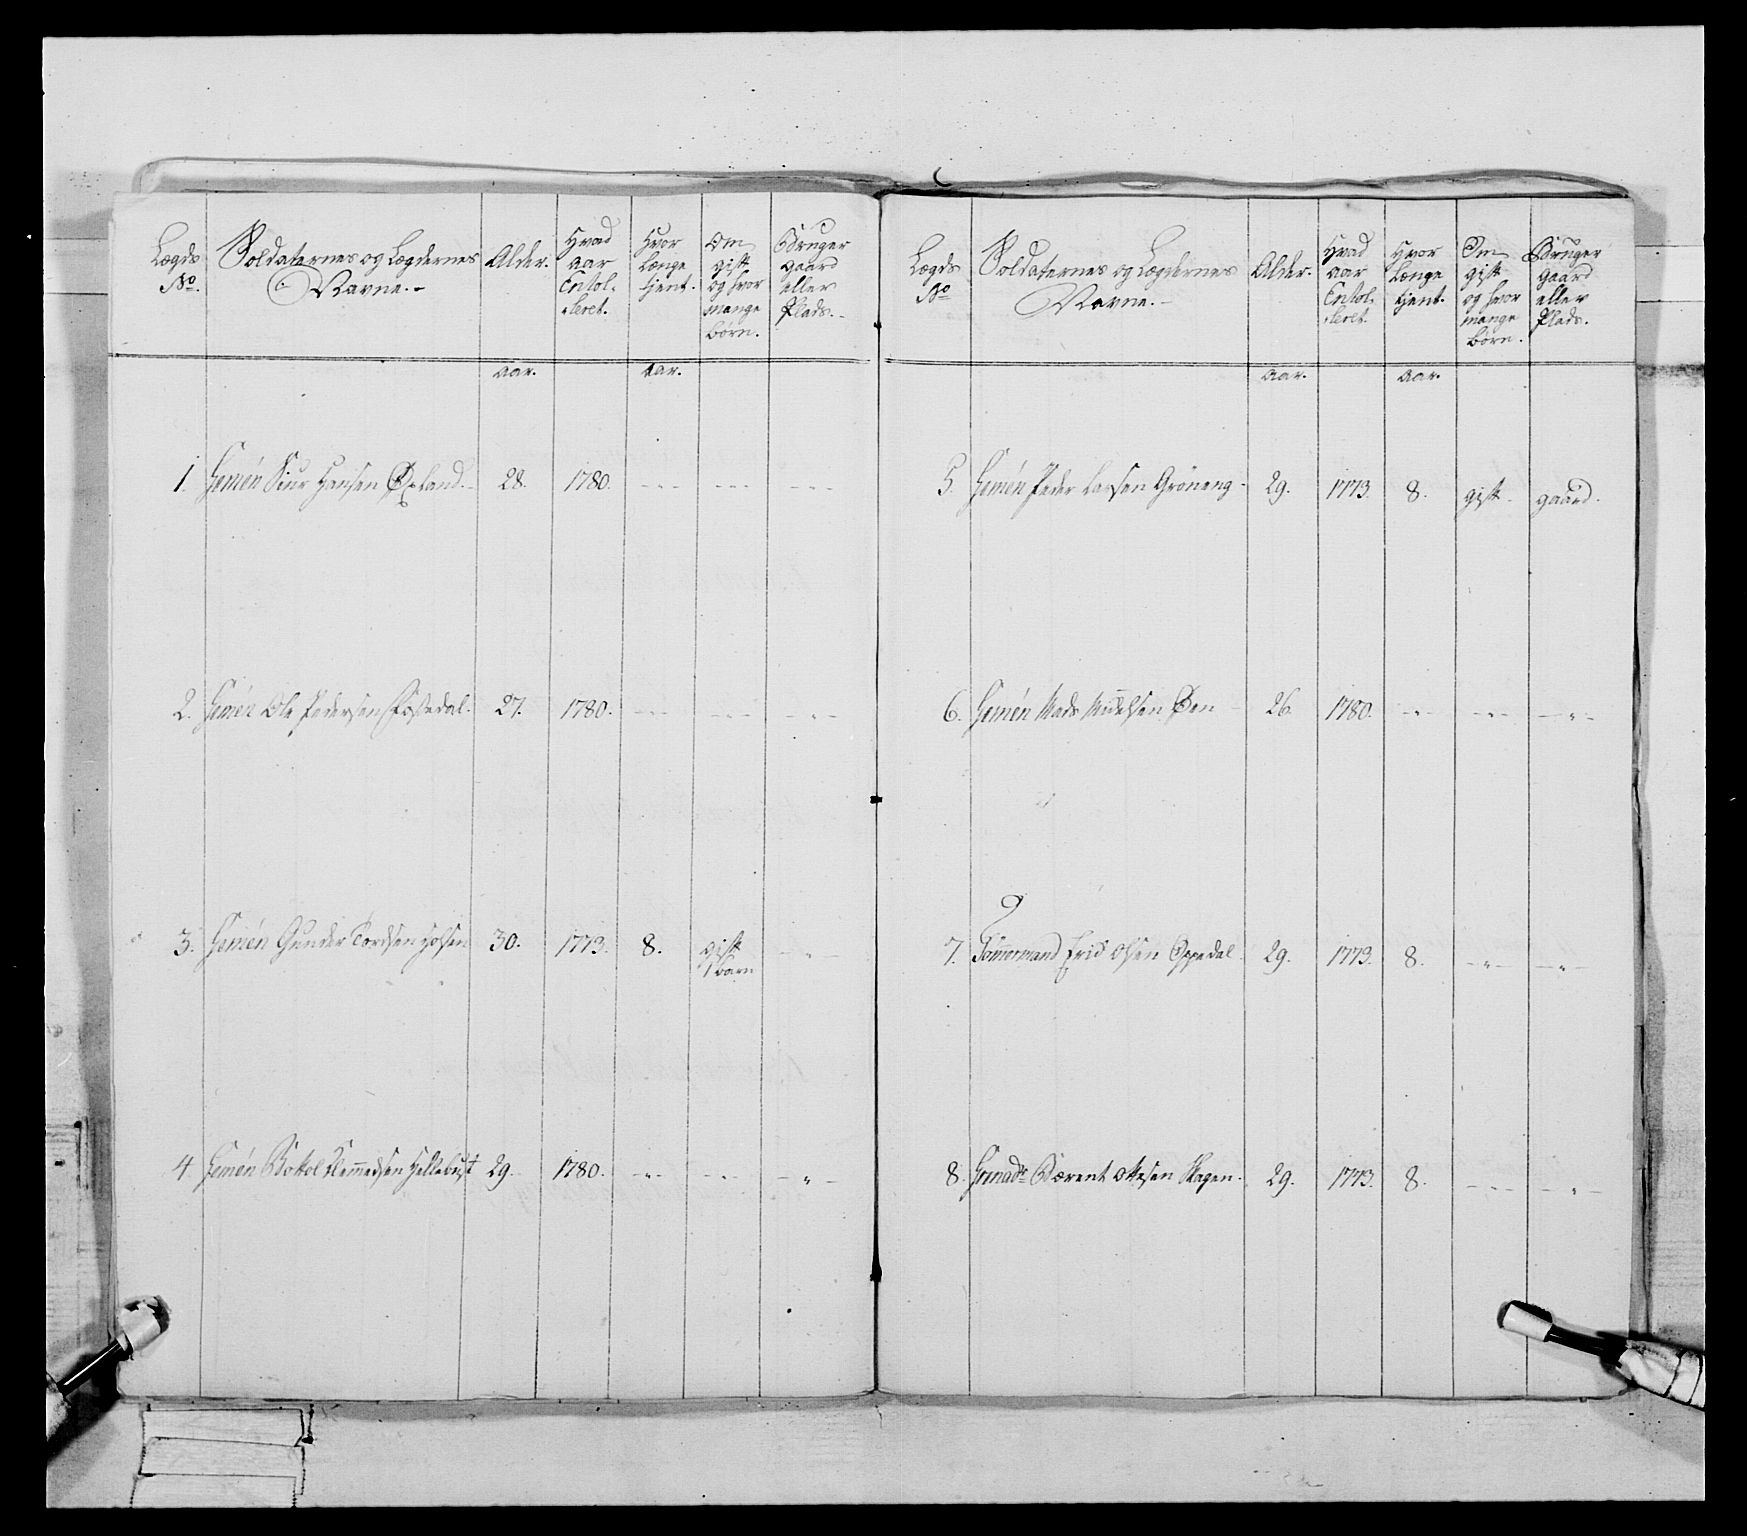 Lægds No. Soldaternes og Lægdernes Navne.- Alder. Hvad aar Enrol-leret. Hvor længe tjent. Om gift og hvor mange børn. Bruger gaard eller Plads.-
aar. aar.
1. Gemén Siur Hansen Øxland.- 28. 1780. -"- -"- -"-
2. Gemén Ole Pedersen Fossedal. 27. 1780. -"- -"- -"-
3. Gemén Gunder Tordsen 30. 1773. 8. gift 1 barn -"-
4 Gemén Clemedsen Hellebust 29. 1780. -"- -"- -"-
Lægds No Soldaternes og Lægdernes Navne.- Alder. Hvad aar Enrol-leret. Hvor længe tjent. Om gift og hvor mange børn. Bruger gaard eller Plads.
aar. aar.
5. Gemén Peder Larsen Gröneng. 29. 1773. 8. gift. gaard.
6. Gemén Mads Mickelsen Øen 26. 1780. -"- -"- -"-
7. Tömmermand Erick Olsen Oppedal. 29. 1773. 8. -"- -"-
8. Grenadr Bærent Ottesen Skagen. 29. 1773. 8. -"- -"-